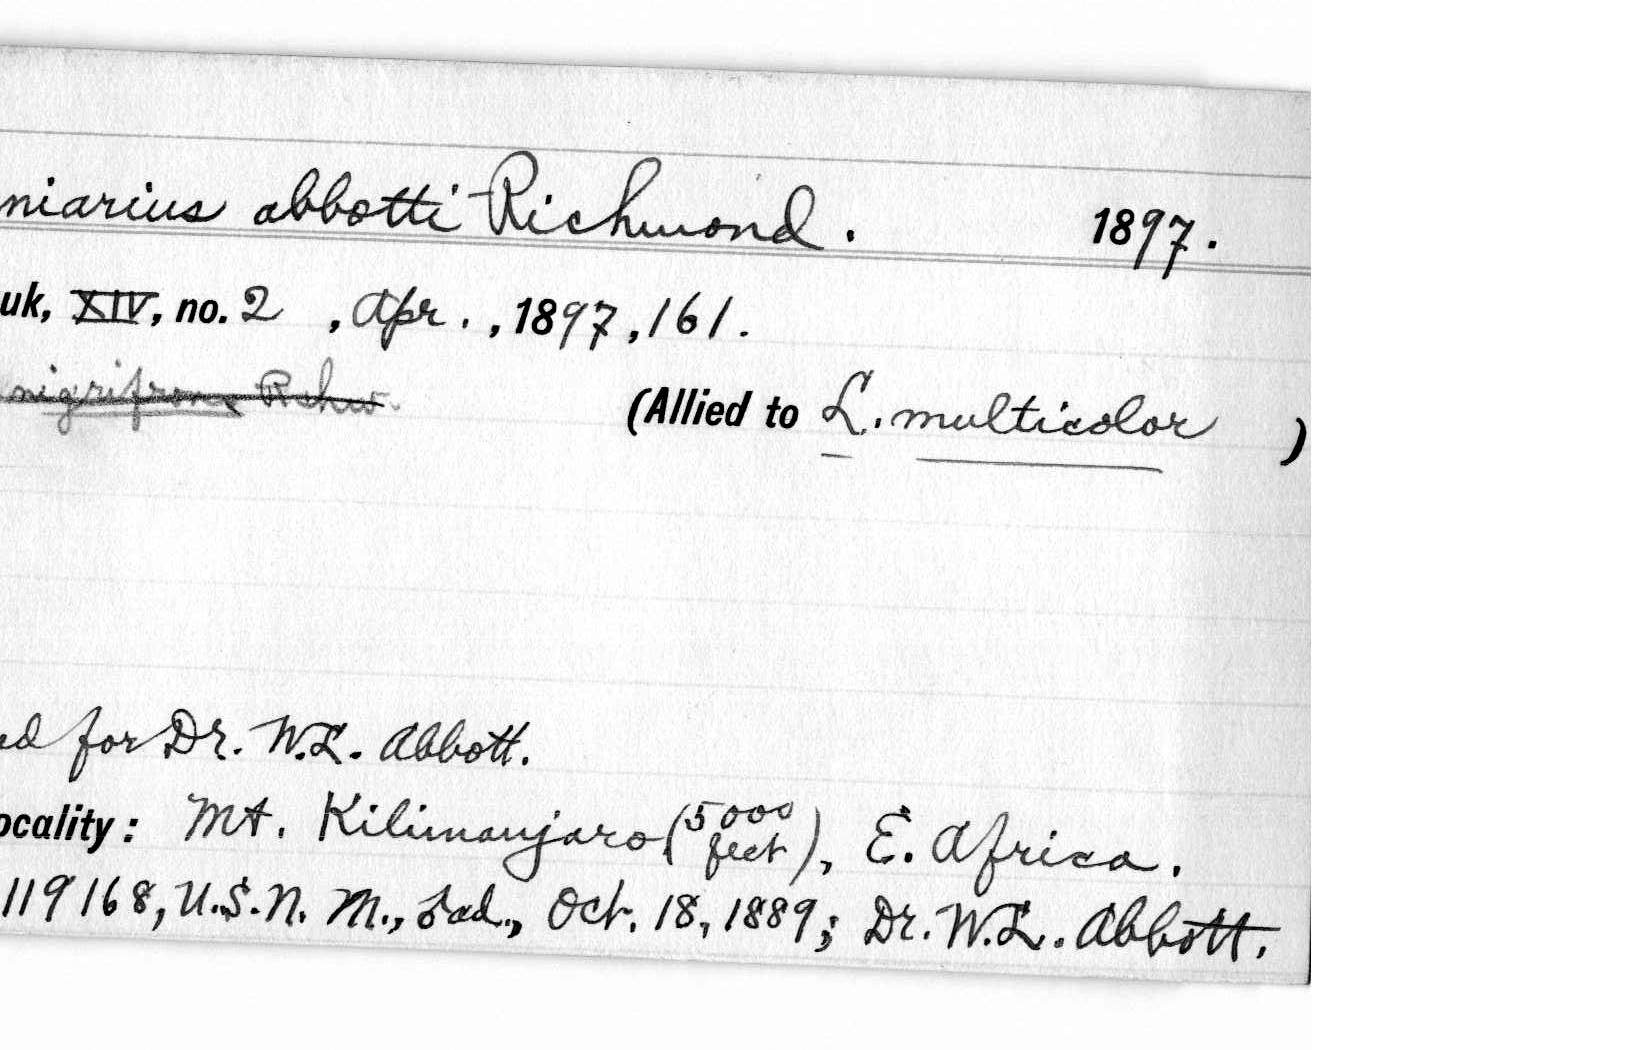 niarius abbotti Richmond. 1897.
uk, XIV, no. 2, Apr., 1897, 161.
nigrifrons Rchw. (Allied to L. multicolor)
ed for Dr. W.L. Abbott.
ocality: Mt. Kilimanjaro (5000 feet), E. Africa.
119168, U.S.N.M., ad., Oct. 18, 1889; Dr. W.L. Abbott.